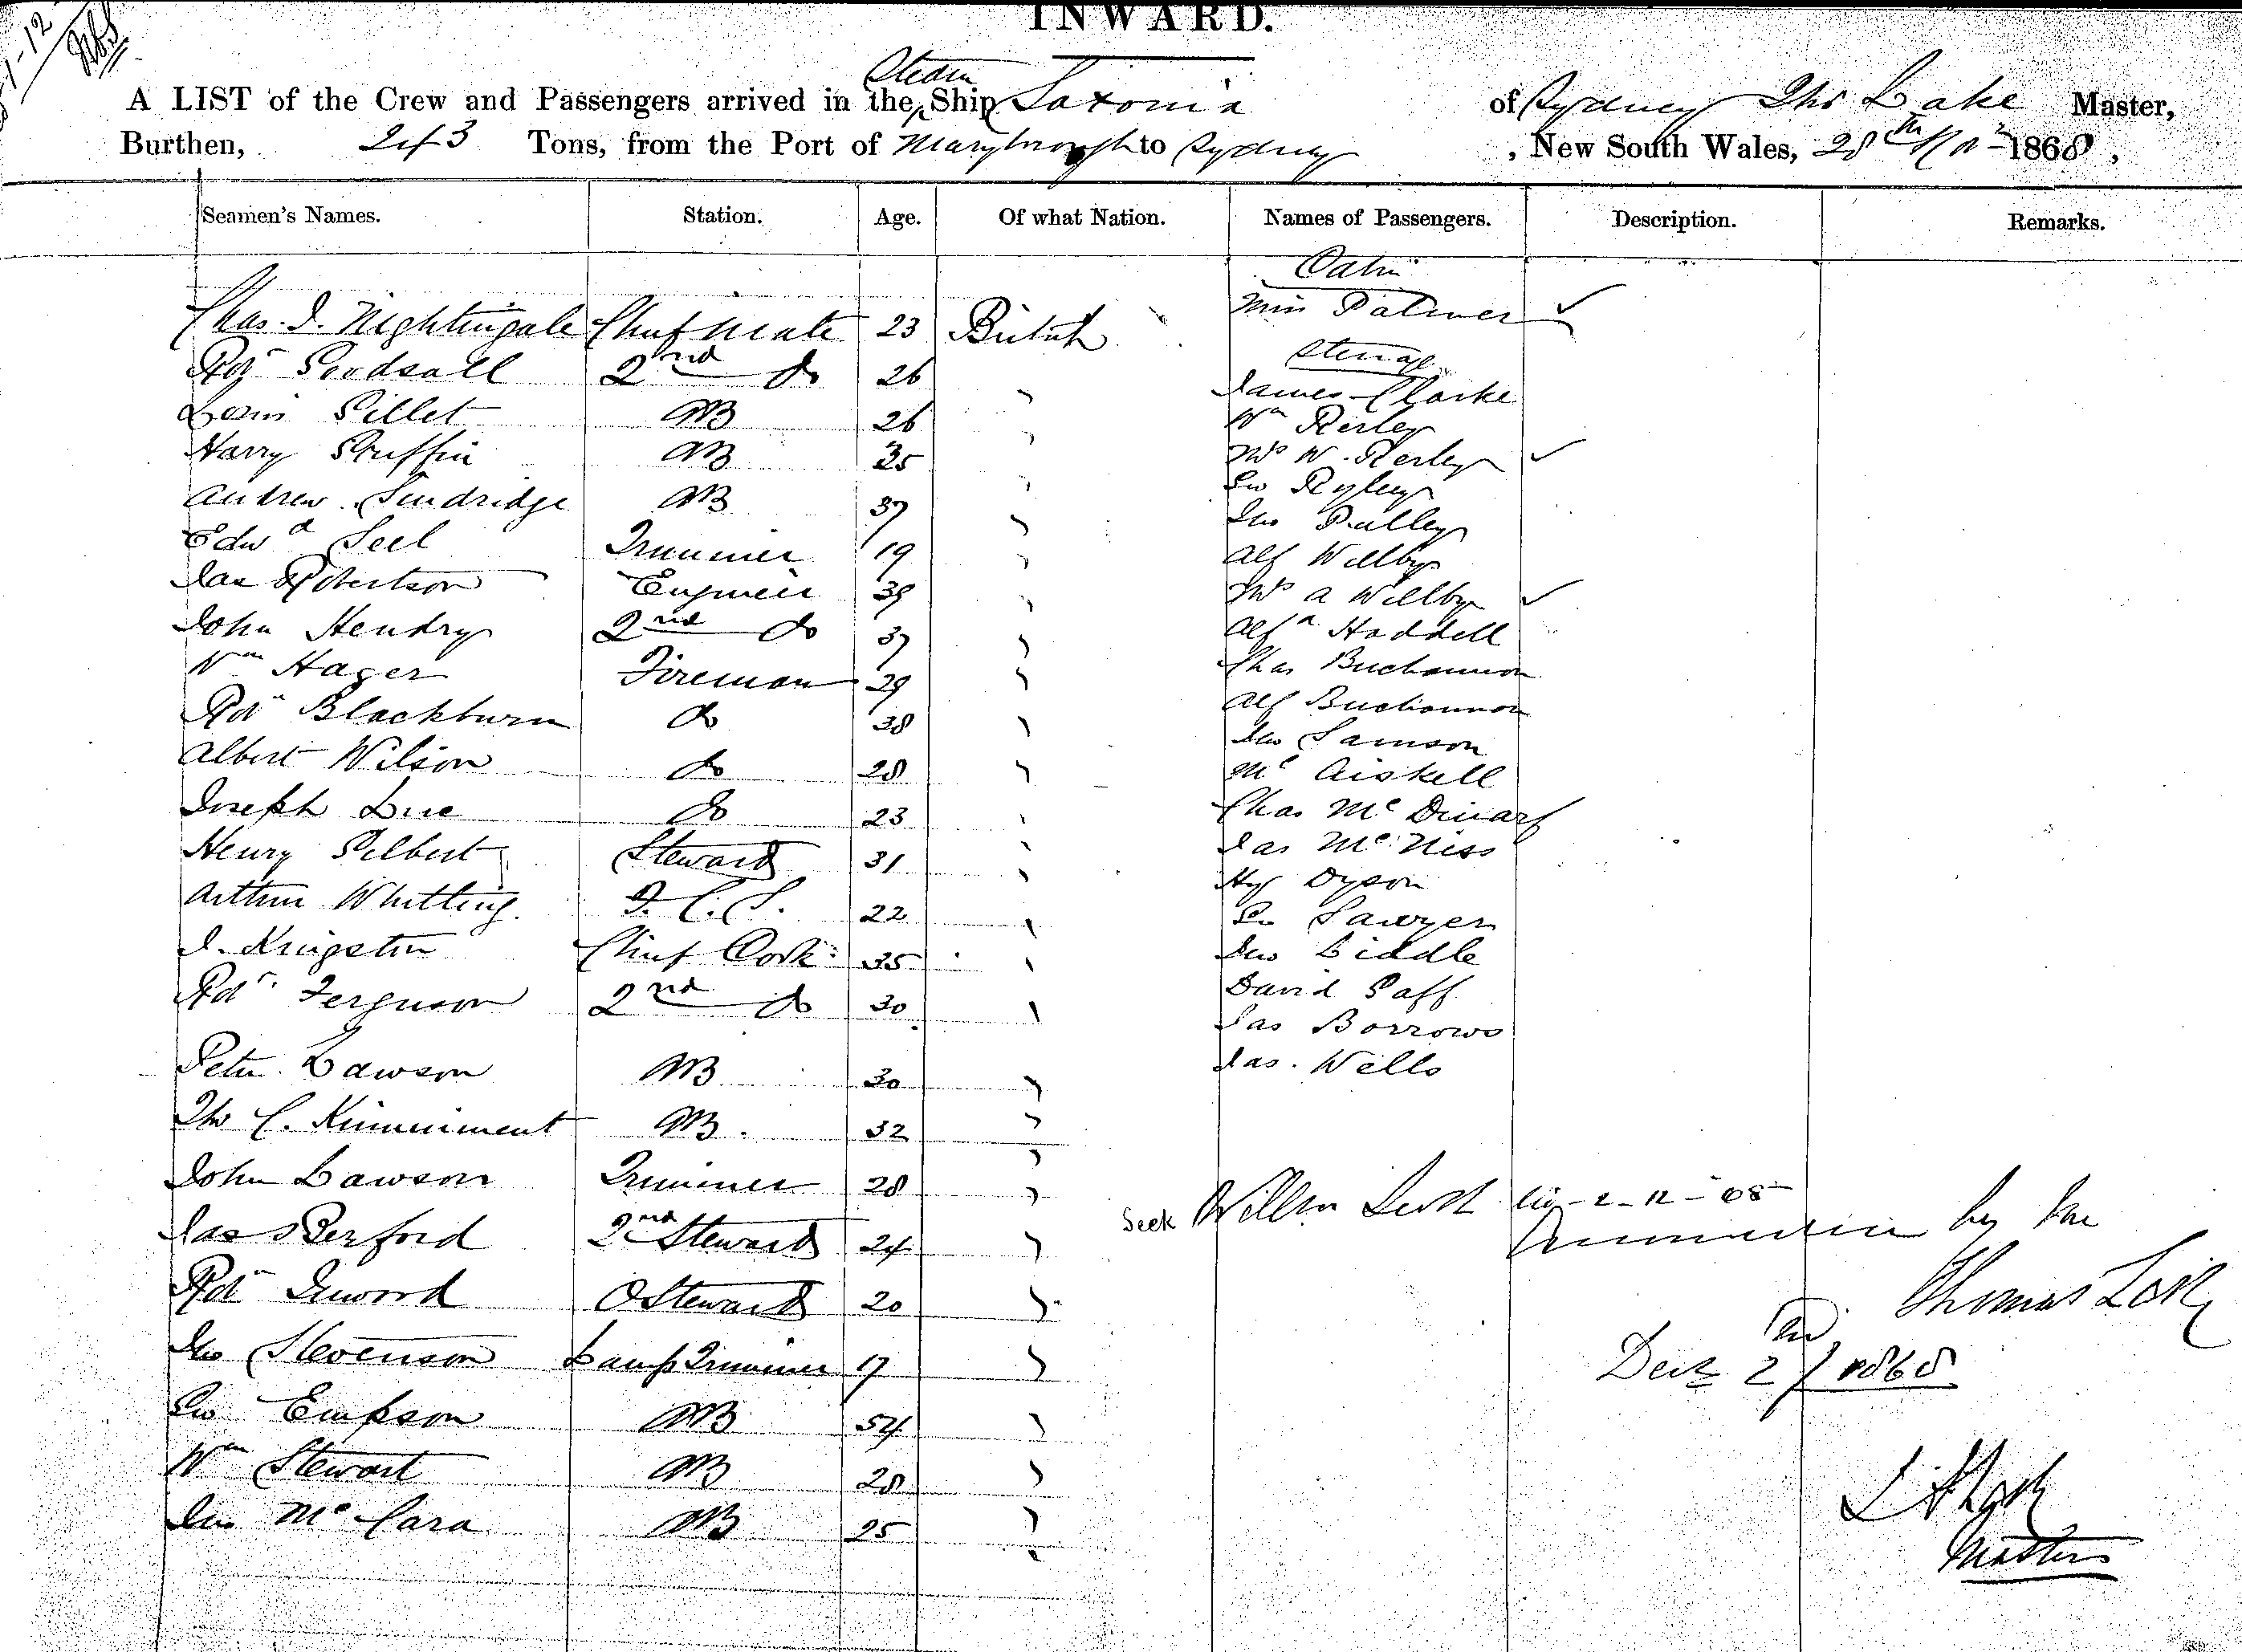 INWARD.
A LIST of the Crew and Passengers arrived in the Steam Ship Saxonia of Sydney Thos Lake Master,
Burthen, 243 Tons, from the Port of Maryborough to Sydney, New South Wales, 28th Novr 1868,
Seamen's Names. Station. Age. Of what Nation. Names of Passengers. Description. Remarks.
Cabin
Chas. I. Nightingale Chief Mate 23 British Miss Palmer ✓
Steerage
Robt Goodsall 2nd do 26 James Clarke
Louis Pillet AB 26 Wm Rerley
Harry Ruffin AB 35 Mrs W. Rerley ✓
Andrew Sundridge AB 37 Geo Ryley
Jno Pulley
Edwd Seel Trimmer 19 Alf Wellby
Jas Robertson Engineer 39 Mrs A Wellby ✓
John Hendry 2nd do 37 Alfd Haddell
Wm Hager Fireman 29 Chas Buchannon
Robt Blackburn do 38 Alf Buchannon
Jno Samson
Albert Wilson do 28 Mc Aiskell
Joseph Lue do 23 Chas Mc
Henry Pilbert Steward 31 Jas McNiss
Hy Dyson
Arthur Whitting. F. C. S. 22 Sawyer
J. Kringstin Chief Cook 35 Jno Liddle
Robt Ferguson 2nd do 30 David Paff
Jas Borrows
Peter Lawson AB 30 Jas. Wells
Thos C. Kinniment AB. 32
John Lawson Trimmer 28
Seek Willm 2-12-68
by me
Jas Berford 2nd Steward 24
Robt Inwood O Steward 20 Thomas Lake
Jno Stevenson Lamp Trimmer 17 Decr 2nd / 1868
Geo Empson AB 54
Wm Stewart AB 28
Jno McCara AB 25
Master